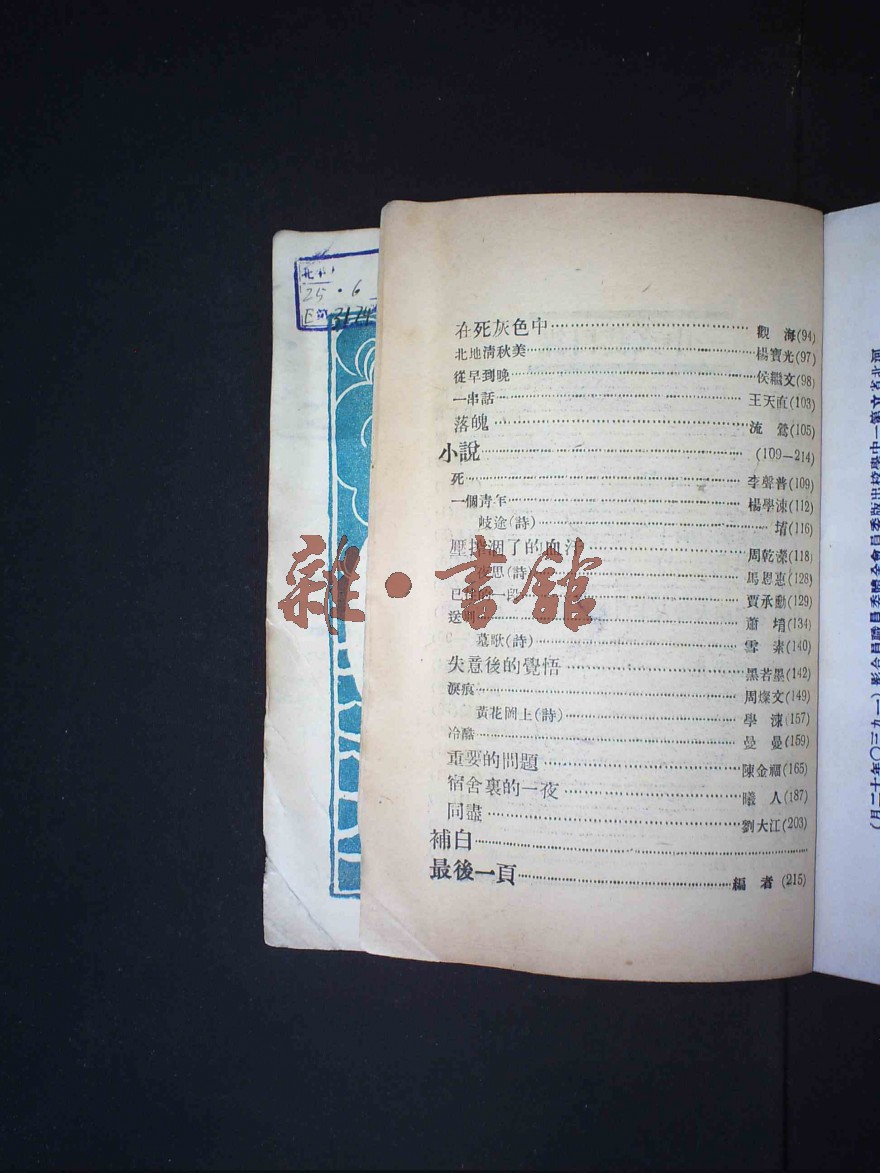 在死灰色中 觀海(94)
北地清秋美 楊寶光(97)
從早到晚 侯繼文(98)
一串話 王天直(103)
落魄 流鶯(105)
小說 (109—214)
死 李聲普(109)
一個靑年 楊學涑(112)
岐途(詩) 堉(116)
壓榨涸了的血汗 周乾濚(118)
夜思(詩) 馬恩惠(128)
的一段 賈承勳(129)
送 蕭堉(134)
墓歌(詩) 雪素(140)
失意後的覺悟 黑若墨(142)
淚痕 周燦文(149)
黃花岡上(詩) 學涑(157)
冷酷 曼曼(159)
重要的問題 陳金福(165)
宿舍裏的一夜 曦人(187)
同盡 劉大江(203)
補白
最後一頁 編者(215)
雜·書館
25·6
3174
河北省立第一中學校出版委員會全體委員職員合影(一九三〇年十二月)